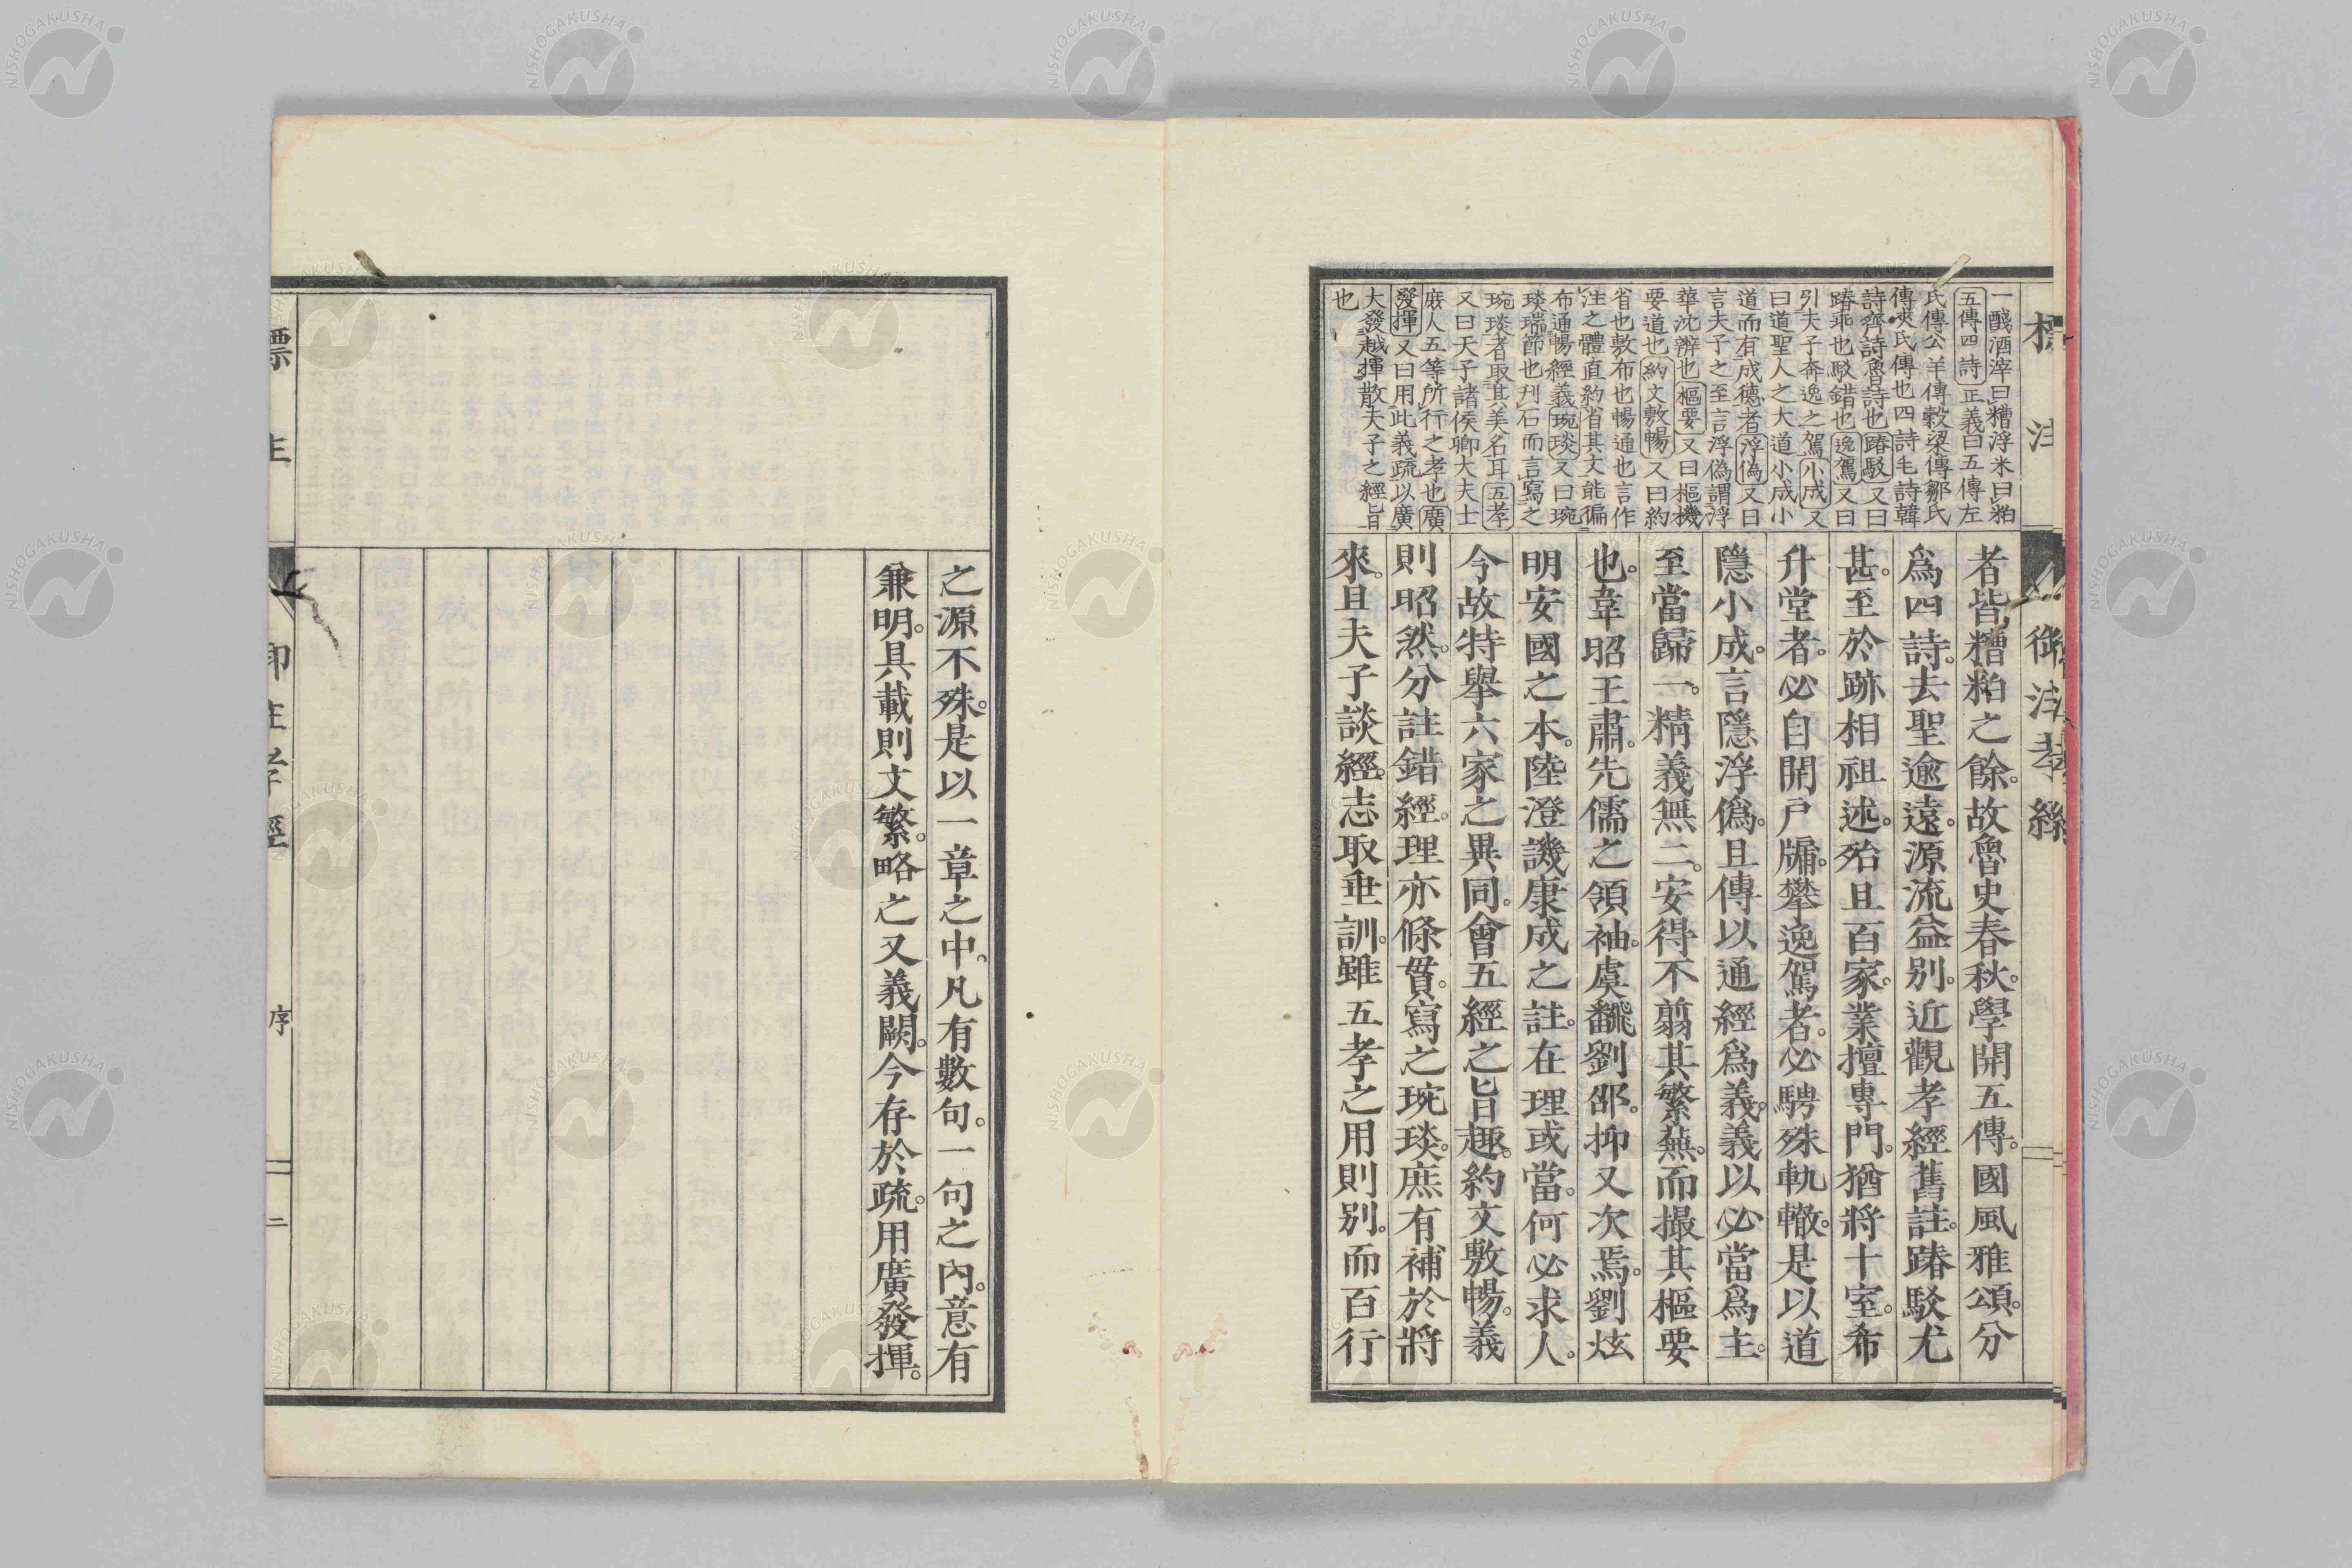 標注
御注孝經
一醆酒滓曰糟浮米曰粕
五傳四詩正義曰五傳左
氏傳公羊傳穀梁傳鄒氏
傳夾氏傳也四詩毛詩韓
詩齊詩魯詩也踳駁又曰
踳乖也駁錯也逸駕又曰
引夫子奔逸之駕小成又
曰道聖人之大道小成小
道而有成德者浮僞又曰
言夫子之至言浮僞謂浮
華沈辨也樞要又曰樞機
要道也約文敷暢又曰約
省也敷布也暢通也言作
注之體直約省其文能徧
布通暢經義琬琰又曰琬
琰瑞節也刋石而言寫之
琬琰者取其美名耳五孝
又曰天子諸侯卿大夫士
庶人五等所行之孝也廣
發揮又曰用此義疏以廣
大發越揮散夫子之經旨
也
者皆糟粕之餘。故魯史春秋。學開五傳。國風雅頌。分
爲四詩。去聖逾遠。源流益別。近觀孝經舊註。踳駁尤
甚。至於跡相祖述。殆且百家。業擅專門。猶將十室。希
升堂者。必自開戸牖。攀逸駕者。必騁殊軌轍。是以道
隱小成。言隱浮僞。且傳以通經爲義。義以必當爲主。
至當歸一。精義無二。安得不翦其繁蕪。而撮其樞要
也。韋昭王肅。先儒之領袖。虞飜劉邵。抑又次焉。劉炫
明安國之本。陸澄譏康成之註。在理或當。何必求人。
今故特舉六家之異同。會五經之旨趣。約文敷暢。義
則昭然。分註錯經。理亦條貫。寫之琬琰。庶有補於將
來。且夫子談經。志取垂訓。雖五孝之用則別。而百行
之源不殊。是以一章之中。凡有數句。一句之內。意有
兼明。具載則文繁。略之又義闕。今存於疏。用廣發揮。
標注
御注孝經
序
二
NISHOGAKUSHA